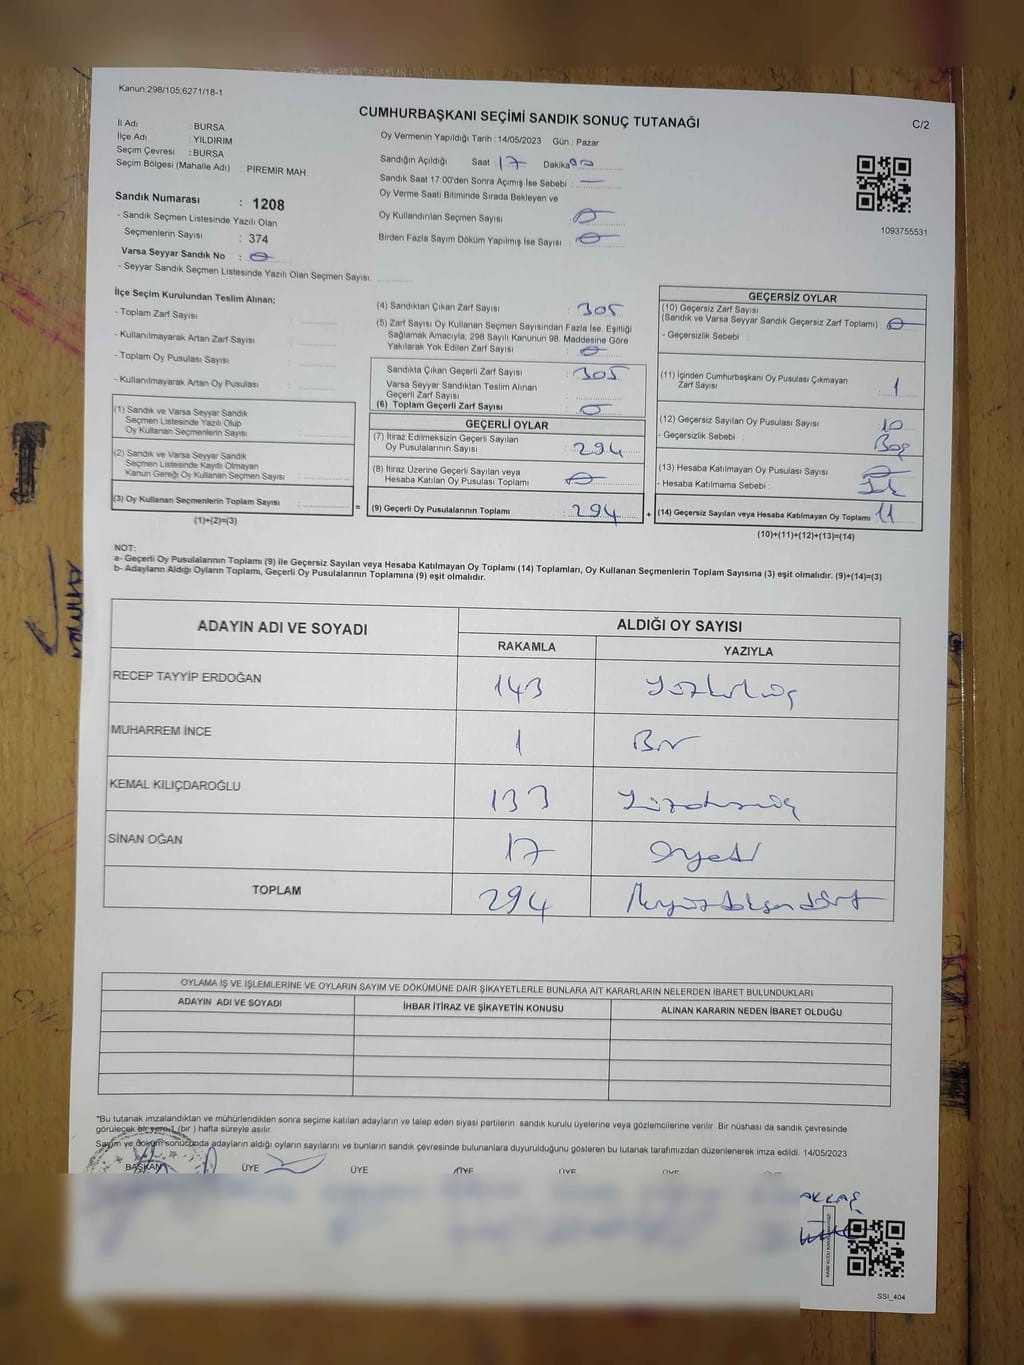 Kanun;298/105,6271/18-1
CUMHURBAŞKANI SEÇİMİ SANDIK SONUÇ TUTANAĞI
C/2
İl Adı : BURSA
İlçe Adı : YILDIRIM
Seçim Çevresi : BURSA
Seçim Bölgesi (Mahalle Adı) : PİREMİR MAH.
Oy Vermenin Yapıldığı Tarih : 14/05/2023 Gün : Pazar
Sandığın Açıldığı Saat : 17 Dakika 00
Sandık Saat 17.00'den Sonra Açımış İse Sebebi : —
Oy Verme Saati Bitiminde Sırada Bekleyen ve
Oy Kullandırılan Seçmen Sayısı : 0
Birden Fazla Sayım Döküm Yapılmış İse Sayısı : 0
1093755531
Sandık Numarası : 1208
- Sandık Seçmen Listesinde Yazılı Olan
Seçmenlerin Sayısı : 374
Varsa Seyyar Sandık No : 0
- Seyyar Sandık Seçmen Listesinde Yazılı Olan Seçmen Sayısı:
İlçe Seçim Kurulundan Teslim Alınan;
- Toplam Zarf Sayısı :
- Kullanılmayarak Artan Zarf Sayısı :
- Toplam Oy Pusulası Sayısı :
- Kullanılmayarak Artan Oy Pusulası :
(1) Sandık ve Varsa Seyyar Sandık
Seçmen Listesinde Yazılı Olup
Oy Kullanan Seçmenlerin Sayısı :
(2) Sandık ve Varsa Seyyar Sandık
Seçmen Listesinde Kayıtlı Olmayan
Kanun Gereği Oy Kullanan Seçmen Sayısı :
(3) Oy Kullanan Seçmenlerin Toplam Sayısı :
(1)+(2)=(3)
(4) Sandıktan Çıkan Zarf Sayısı : 305
(5) Zarf Sayısı Oy Kullanan Seçmen Sayısından Fazla İse, Eşitliği
Sağlamak Amacıyla; 298 Sayılı Kanunun 98. Maddesine Göre
Yakılarak Yok Edilen Zarf Sayısı : 0
Sandıkta Çıkan Geçerli Zarf Sayısı : 305
Varsa Seyyar Sandıktan Teslim Alınan
Geçerli Zarf Sayısı :
(6) Toplam Geçerli Zarf Sayısı : 0
GEÇERLİ OYLAR
(7) İtiraz Edilmeksizin Geçerli Sayılan
Oy Pusulalarının Sayısı : 294
(8) İtiraz Üzerine Geçerli Sayılan veya
Hesaba Katılan Oy Pusulası Toplamı : 0
= (9) Geçerli Oy Pusulalarının Toplamı : 294 +
GEÇERSİZ OYLAR
(10) Geçersiz Zarf Sayısı
(Sandık ve Varsa Seyyar Sandık Geçersiz Zarf Toplamı) : 0
- Geçersizlik Sebebi :
(11) İçinden Cumhurbaşkanı Oy Pusulası Çıkmayan
Zarf Sayısı : 1
(12) Geçersiz Sayılan Oy Pusulası Sayısı : 10
- Geçersizlik Sebebi : Boş
(13) Hesaba Katılmayan Oy Pusulası Sayısı : 0
- Hesaba Katılmama Sebebi :
(14) Geçersiz Sayılan veya Hesaba Katılmayan Oy Toplamı : 11
(10)+(11)+(12)+(13)=(14)
NOT:
a- Geçerli Oy Pusulalarının Toplamı (9) ile Geçersiz Sayılan veya Hesaba Katılmayan Oy Toplamı (14) Toplamları, Oy Kullanan Seçmenlerin Toplam Sayısına (3) eşit olmalıdır. (9)+(14)=(3)
b- Adayların Aldığı Oyların Toplamı, Geçerli Oy Pusulalarının Toplamına (9) eşit olmalıdır.
ADAYIN ADI VE SOYADI
ALDIĞI OY SAYISI
RAKAMLA YAZIYLA
RECEP TAYYİP ERDOĞAN 143 Yüzkırküç
MUHARREM İNCE 1 Bir
KEMAL KILIÇDAROĞLU 133 Yüzotuzüç
SİNAN OĞAN 17 Onyedi
TOPLAM 294 İkiyüzdoksandört
OYLAMA İŞ VE İŞLEMLERİNE VE OYLARIN SAYIM VE DÖKÜMÜNE DAİR ŞİKAYETLERLE BUNLARA AİT KARARLARIN NELERDEN İBARET BULUNDUKLARI
ADAYIN ADI VE SOYADI İHBAR İTİRAZ VE ŞİKAYETİN KONUSU ALINAN KARARIN NEDEN İBARET OLDUĞU
*Bu tutanak imzalandıktan ve mühürlendikten sonra seçime katılan adayların ve talep eden siyasi partilerin sandık kurulu üyelerine veya gözlemcilerine verilir. Bir nüshası da sandık çevresinde
görülecek bir yere 1 (bir ) hafta süreyle asılır.
Sayım ve döküm sonucunda adayların aldığı oyların sayılarını ve bunların sandık çevresinde bulunanlara duyurulduğunu gösteren bu tutanak tarafımızdan düzenlenerek imza edildi. 14/05/2023
BAŞKAN ÜYE ÜYE ÜYE ÜYE ÜYE
AKKAŞ
SSI_404